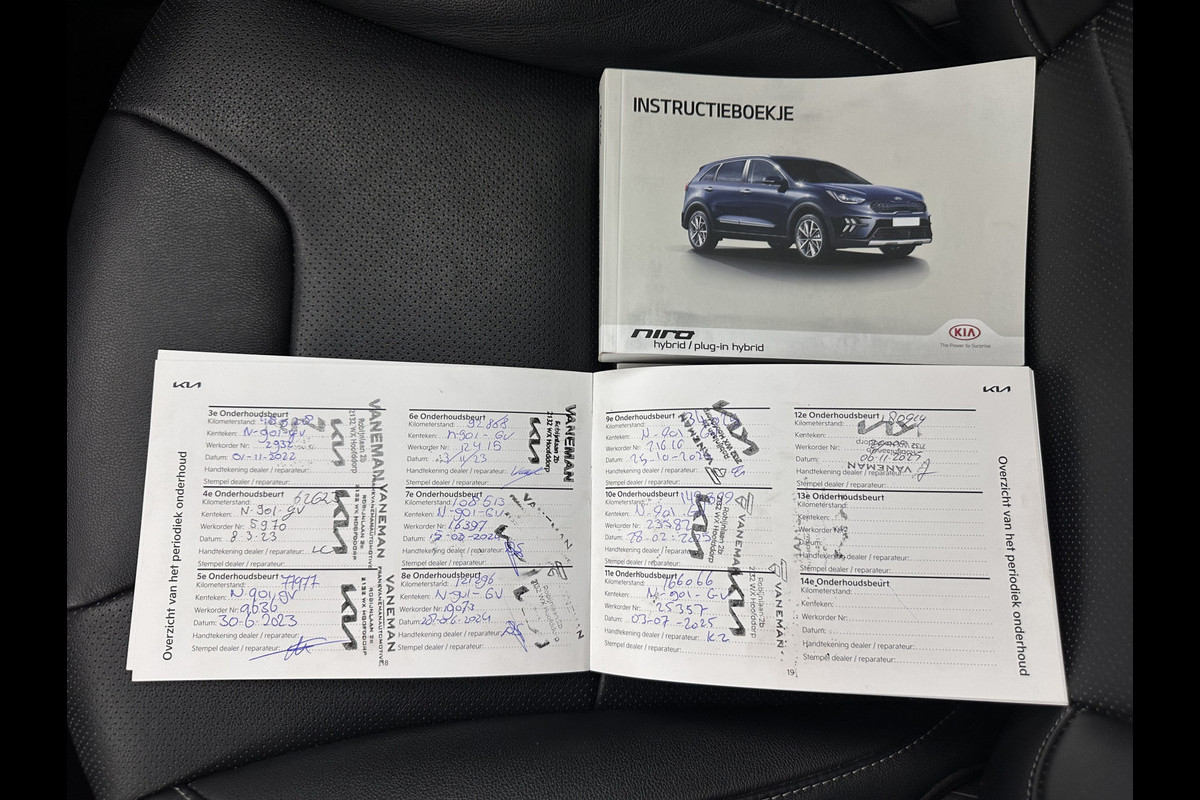 INSTRUCTIEBOEKJE
niro
hybrid / plug-in hybrid
KIA
The Power to Surprise
KIA
Overzicht van het periodiek onderhoud
3e Onderhoudsbeurt
Kilometerstand:
Kenteken: N-901-GV
Werkorder Nr: 2932
Datum: 01-11-2022
Handtekening dealer / reparateur:
Stempel dealer / reparateur:
KIA
VANEMAN
Robijnlaan 2b
2132 WX Hoofddorp
4e Onderhoudsbeurt
Kilometerstand:
Kenteken: N-901-GV
Werkorder Nr: 5970
Datum: 8.3.23
Handtekening dealer / reparateur:
Stempel dealer / reparateur:
KIA
VANEMAN
ROBIJNLAAN 2B
2132 WX HOOFDDORP
5e Onderhoudsbeurt
Kilometerstand: 77977
Kenteken: N-901-GV
Werkorder Nr: 9636
Datum: 30-6-2023
Handtekening dealer / reparateur:
Stempel dealer / reparateur:
KIA
VANEMAN
ROBIJNLAAN 2B
2132 WX HOOFDDORP
6e Onderhoudsbeurt
Kilometerstand: 92.868
Kenteken: N-901-GV
Werkorder Nr: 12415
Datum:
Handtekening dealer / reparateur:
Stempel dealer / reparateur:
KIA
VANEMAN
Robijnlaan 2b
2132 WX Hoofddorp
7e Onderhoudsbeurt
Kilometerstand: 108.613
Kenteken: N-901-GV
Werkorder Nr: 16397
Datum:
Handtekening dealer / reparateur:
Stempel dealer / reparateur:
8e Onderhoudsbeurt
Kilometerstand: 121896
Kenteken: N-901-GV
Werkorder Nr: 19073
Datum:
Handtekening dealer / reparateur:
Stempel dealer / reparateur:
18
KIA
Overzicht van het periodiek onderhoud
9e Onderhoudsbeurt
Kilometerstand:
Kenteken: N-901
Werkorder Nr: 21616
Datum:
Handtekening dealer / reparateur:
Stempel dealer / reparateur:
KIA
VANEMAN
10e Onderhoudsbeurt
Kilometerstand:
Kenteken: N-901
Werkorder Nr: 23582
Datum: 28-02-2025
Handtekening dealer / reparateur:
Stempel dealer / reparateur:
KIA
VANEMAN
Robijnlaan 2b
2132 WX Hoofddorp
11e Onderhoudsbeurt
Kilometerstand: 166066
Kenteken: N-901-GV
Werkorder Nr: 25357
Datum: 03-07-2025
Handtekening dealer / reparateur:
Stempel dealer / reparateur:
KIA
VANEMAN
Robijnlaan 2b
2132 WX Hoofddorp
12e Onderhoudsbeurt
Kilometerstand:
Kenteken:
Werkorder Nr:
Datum: 06.11.2025
Handtekening dealer / reparateur:
Stempel dealer / reparateur:
KIA
VANEMAN
13e Onderhoudsbeurt
Kilometerstand:
Kenteken:
Werkorder Nr:
Datum:
Handtekening dealer / reparateur:
Stempel dealer / reparateur:
14e Onderhoudsbeurt
Kilometerstand:
Kenteken:
Werkorder Nr:
Datum:
Handtekening dealer / reparateur:
Stempel dealer / reparateur:
19